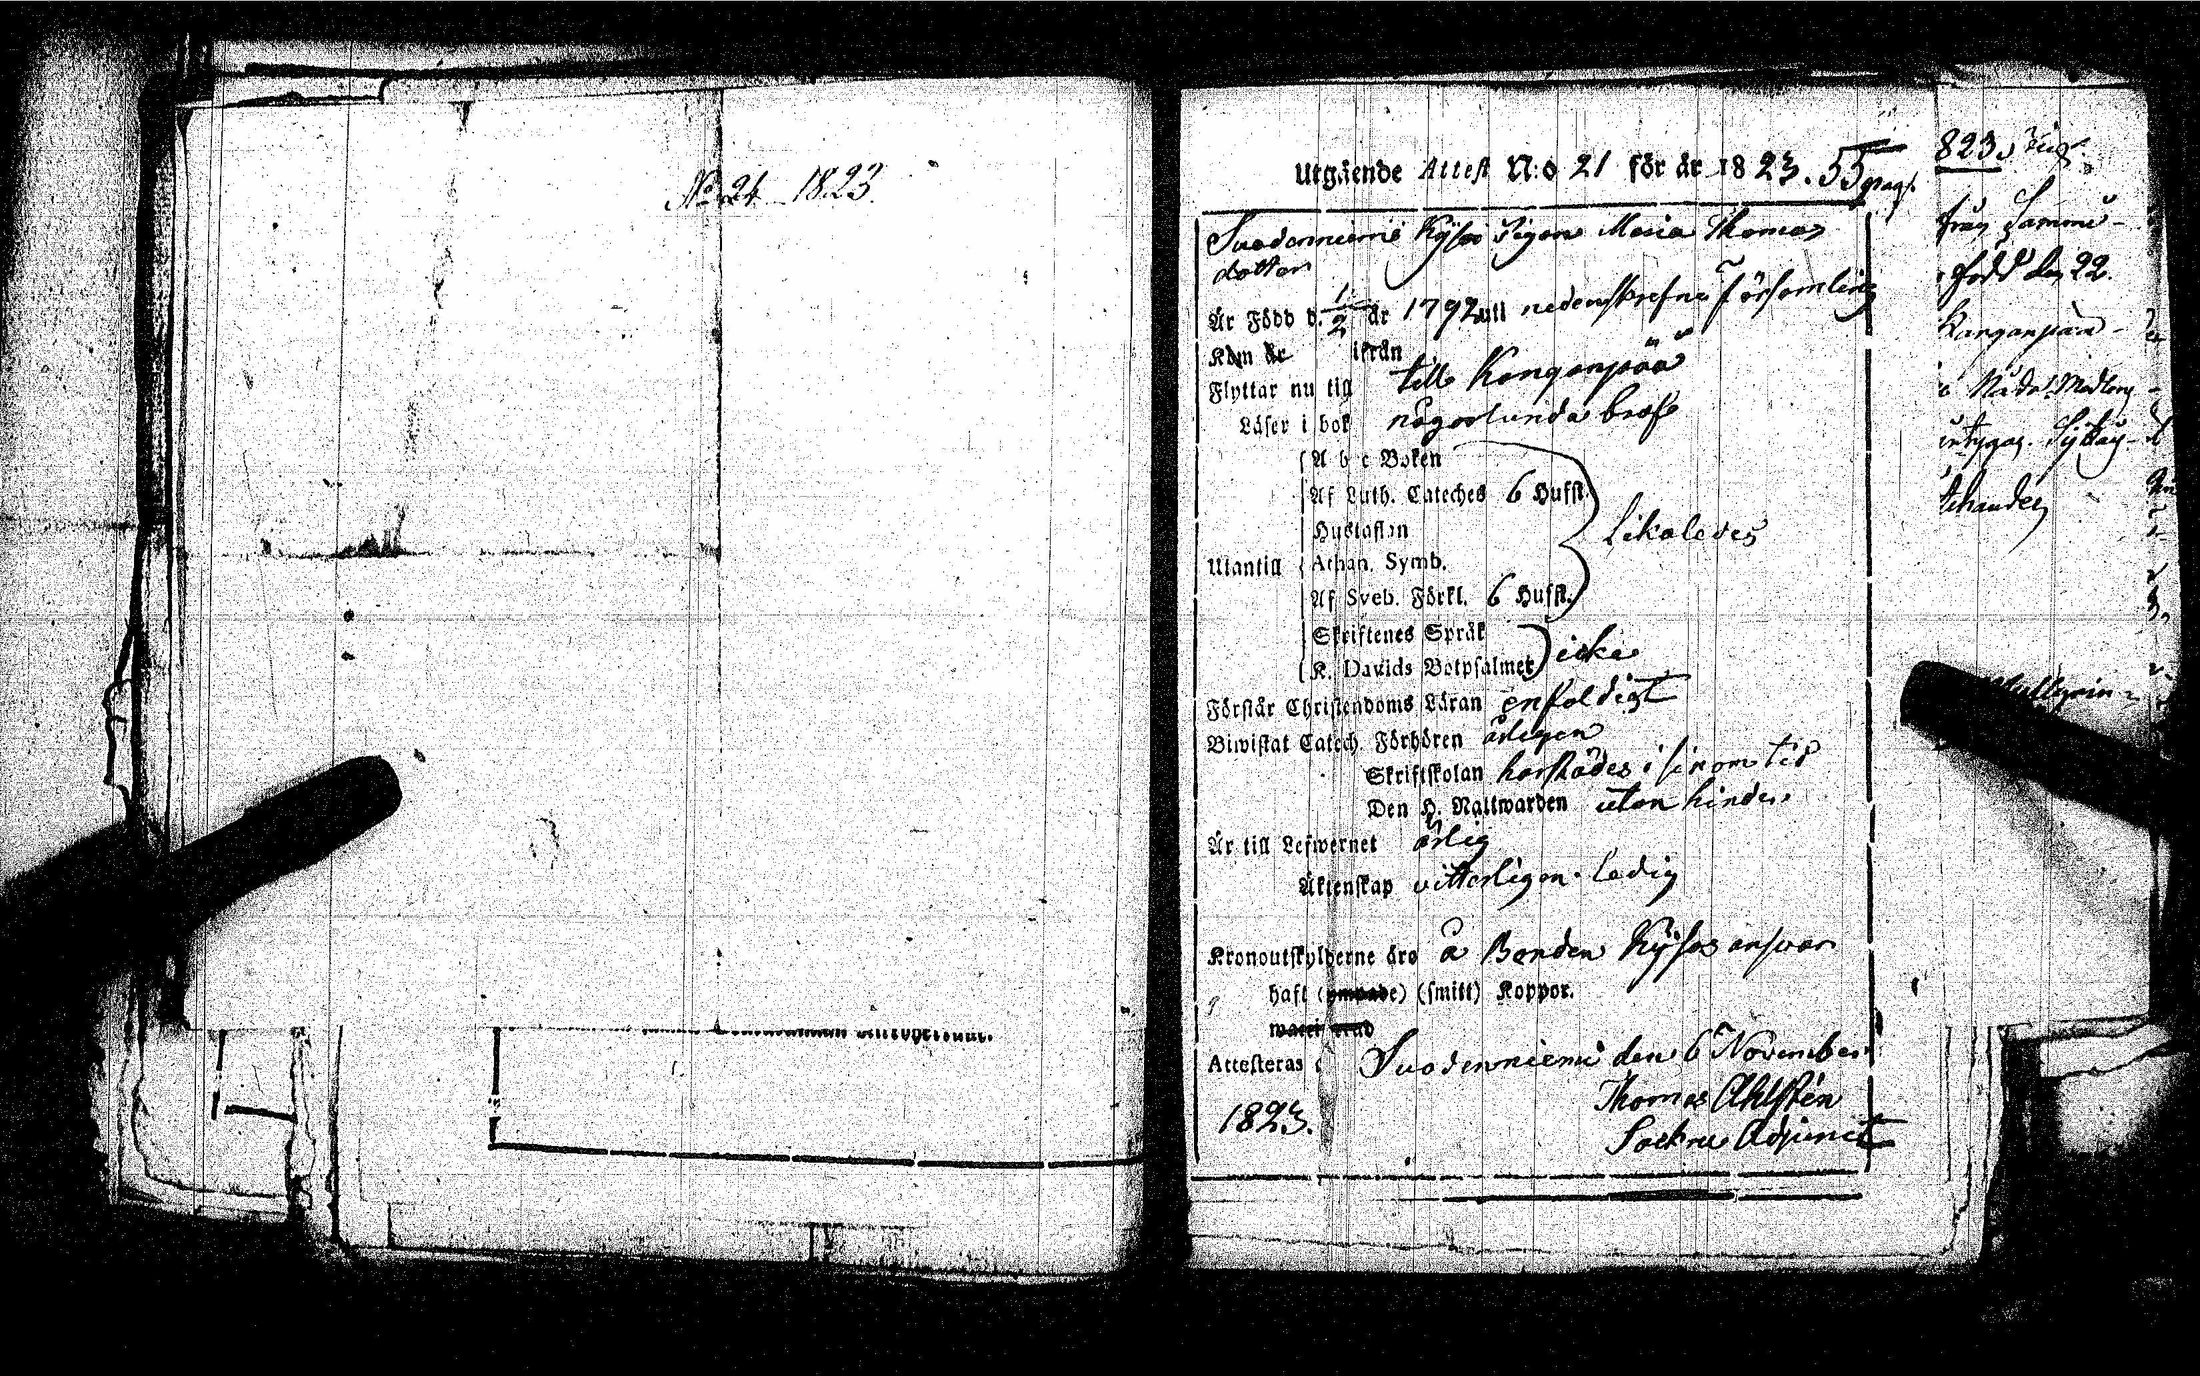 No 24 1823.
Utgående Attest N:o 21 för år 1823. 55 pag.
Suodenniemi Kyfsö Pigan Maria Thomas
dotter
Är Född d. 1/2 år 1792 uti nedenskrefne Församling
Kom år ifrån
Flyttar nu till till Kanganpää
Läser i bok någorlunda bra
A b c Boken
Af Luth. Cateches 6 Hufst.
Hustaflan
Likaledes
Utantill Athan. Symb.
Af Sveb. Förkl. 6 Hufst.
Skriftenes Språk
K. Davids Botpsalmer icke
Förstår Christendoms Läran enfoldigt
Biwistat Catech. Förhören årligen
Skriftskolan härstädes i sinom tid
Den H. Nattwarden utan hinder
Är till Lefwernet ärlig
Äktenskap vitterligen ledig
Kronoutskylderne äro å Bonden Kyfsös answar
haft (ympade) (smitt) Koppor.
Attesteras Suodenniemi den 6 November
1823.
Thomas Ahlstén
Sockne Adjunct
823.
från
född den 22
Kanganpää
intygar